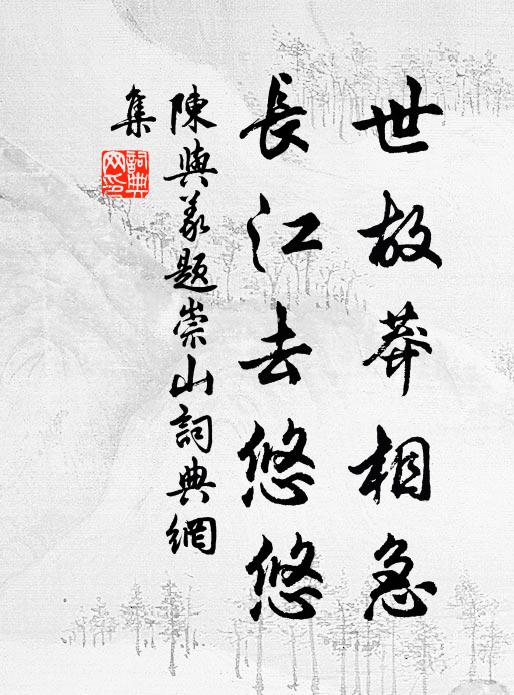 世故莽相急
長江去悠悠
陳與義題崇山詞典網
集
詞典
網